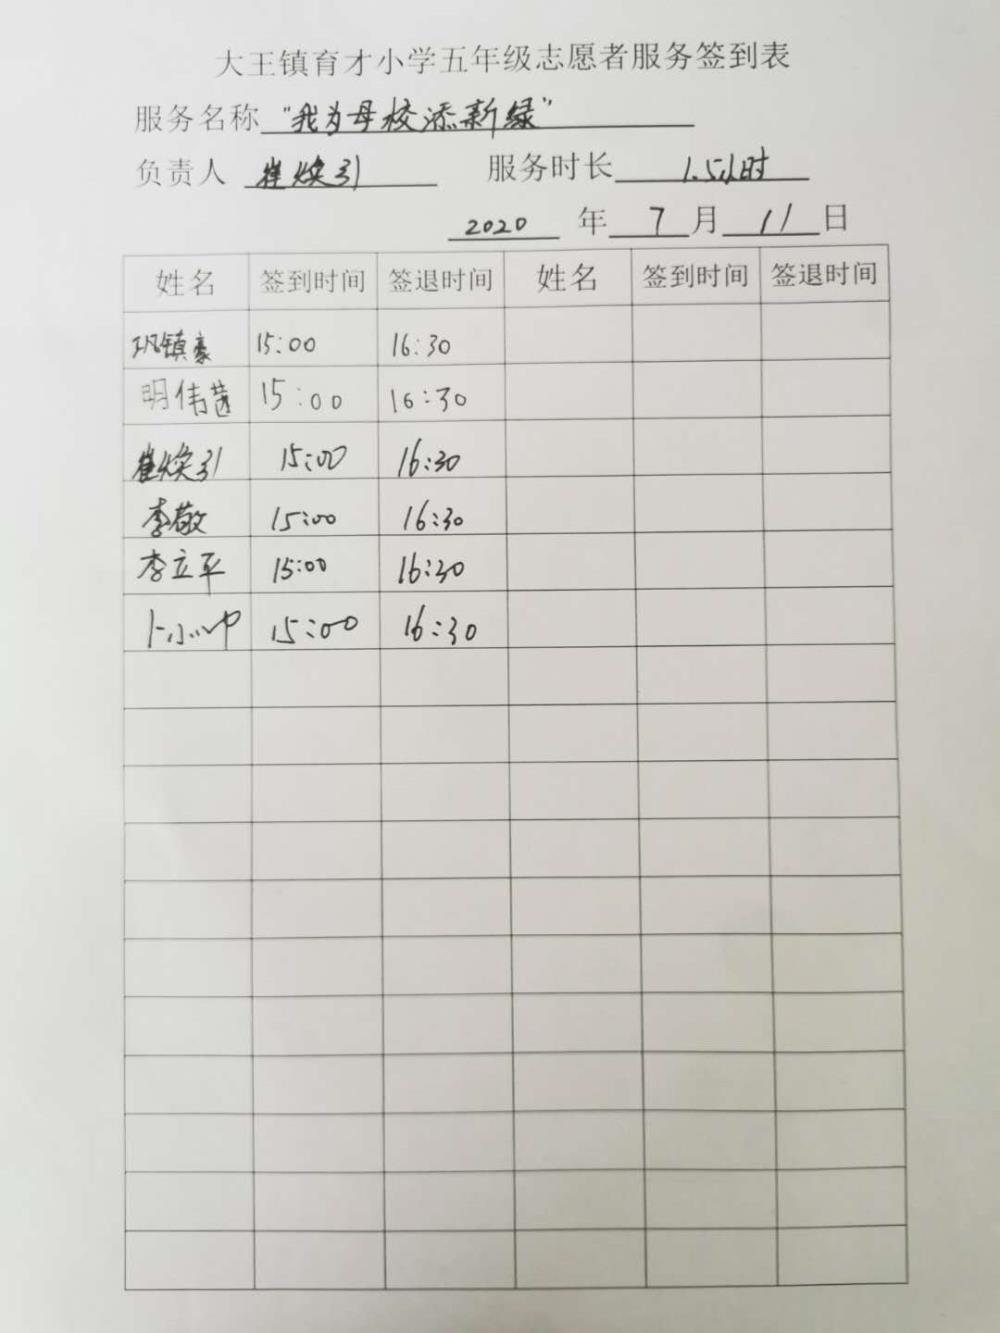 大王镇育才小学五年级志愿者服务签到表
服务名称 "我为母校添新绿"
负责人 崔焕引 服务时长 1.5小时
2020 年 7 月 11 日
姓名 签到时间 签退时间 姓名 签到时间 签退时间
巩镇豪 15:00 16:30
明伟 15:00 16:30
崔焕引 15:00 16:30
李敬 15:00 16:30
李立平 15:00 16:30
15:00 16:30